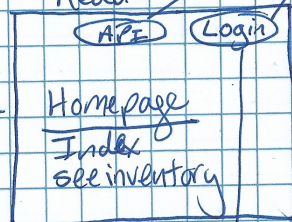 API Login
Homepage
Index
see inventory